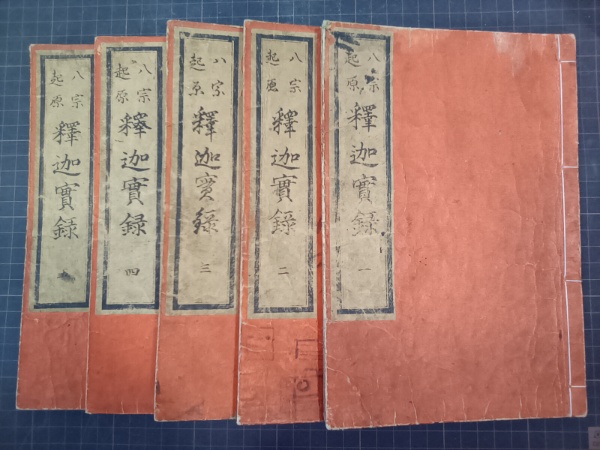 八宗
起原
釋迦實録
一
八宗
起原
釋迦實録
二
八宗
起原
釋迦實録
三
八宗
起原
釋迦實録
四
八宗
起原
釋迦實録